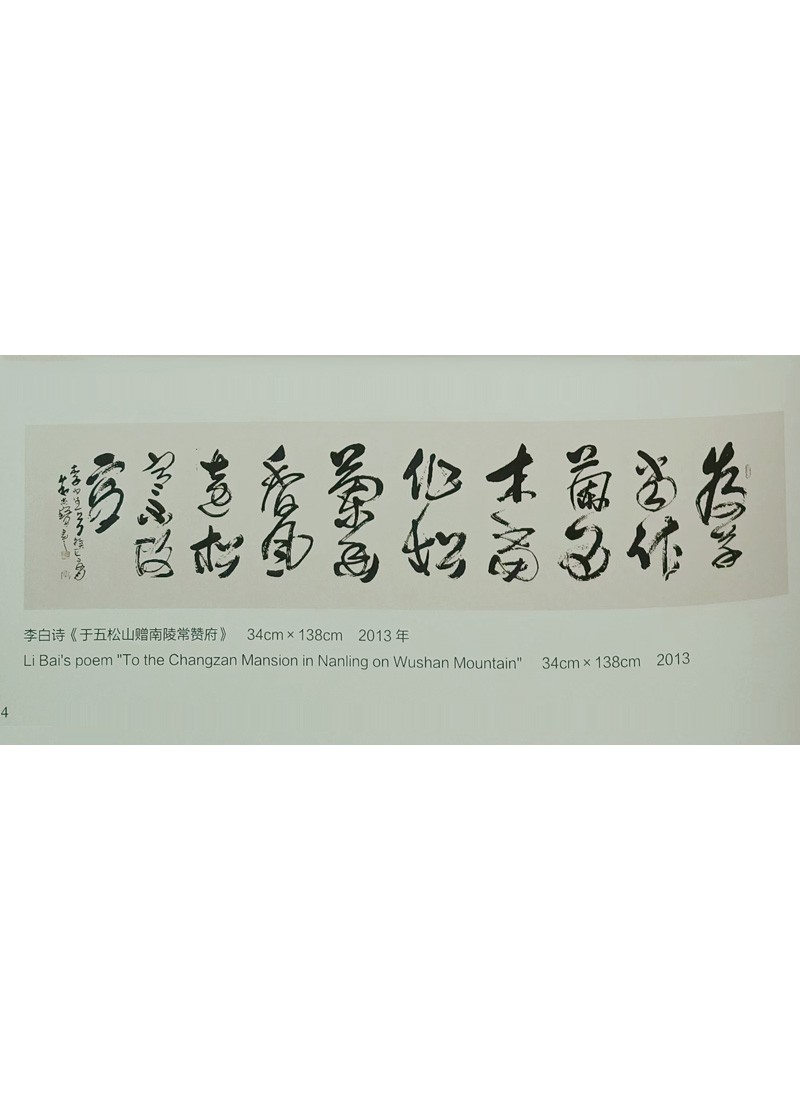 為草
當作
蘭為
木當
作松
蘭幽
香風
遠松
寒不改
容
李白诗《于五松山赠南陵常赞府》 34cm×138cm 2013 年
Li Bai's poem "To the Changzan Mansion in Nanling on Wushan Mountain" 34cm×138cm 2013
4